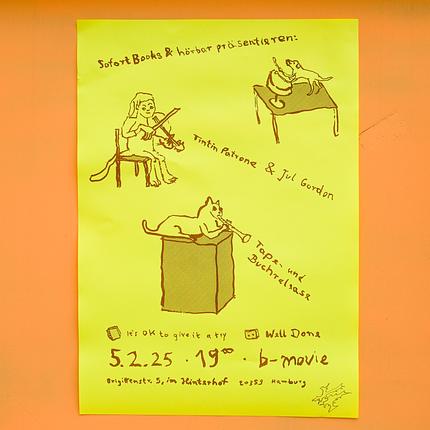 Sofort Books & hörbar präsentieren:
Tintin Patrone & Jul Gordon
Tape- und
Buchrelease
It's OK to give it a try
Well Done
5.2.25 · 19⁰⁰ · b-movie
Brigittenstr. 5, im Hinterhof 20359 Hamburg